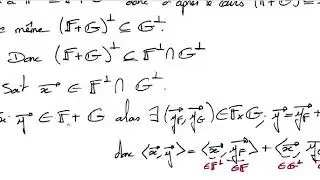 donc d'après le cours (𝔽+𝔾)⊥ ⊆
même (𝔽+𝔾)⊥ ⊆ 𝔾⊥.
Donc (𝔽+𝔾)⊥ ⊆ 𝔽⊥∩𝔾⊥
Soit x⃗ ∈ 𝔽⊥∩𝔾⊥.
Si y⃗ ∈ 𝔽+𝔾 alors ∃(y⃗_F, y⃗_G)∈𝔽×𝔾; y⃗=y⃗_F+
donc ⟨x⃗, y⃗⟩ = ⟨x⃗, y⃗_F⟩ + ⟨x⃗, y⃗_G
∈𝔽⊥ ∈𝔽 ∈𝔾⊥ ∈𝔾